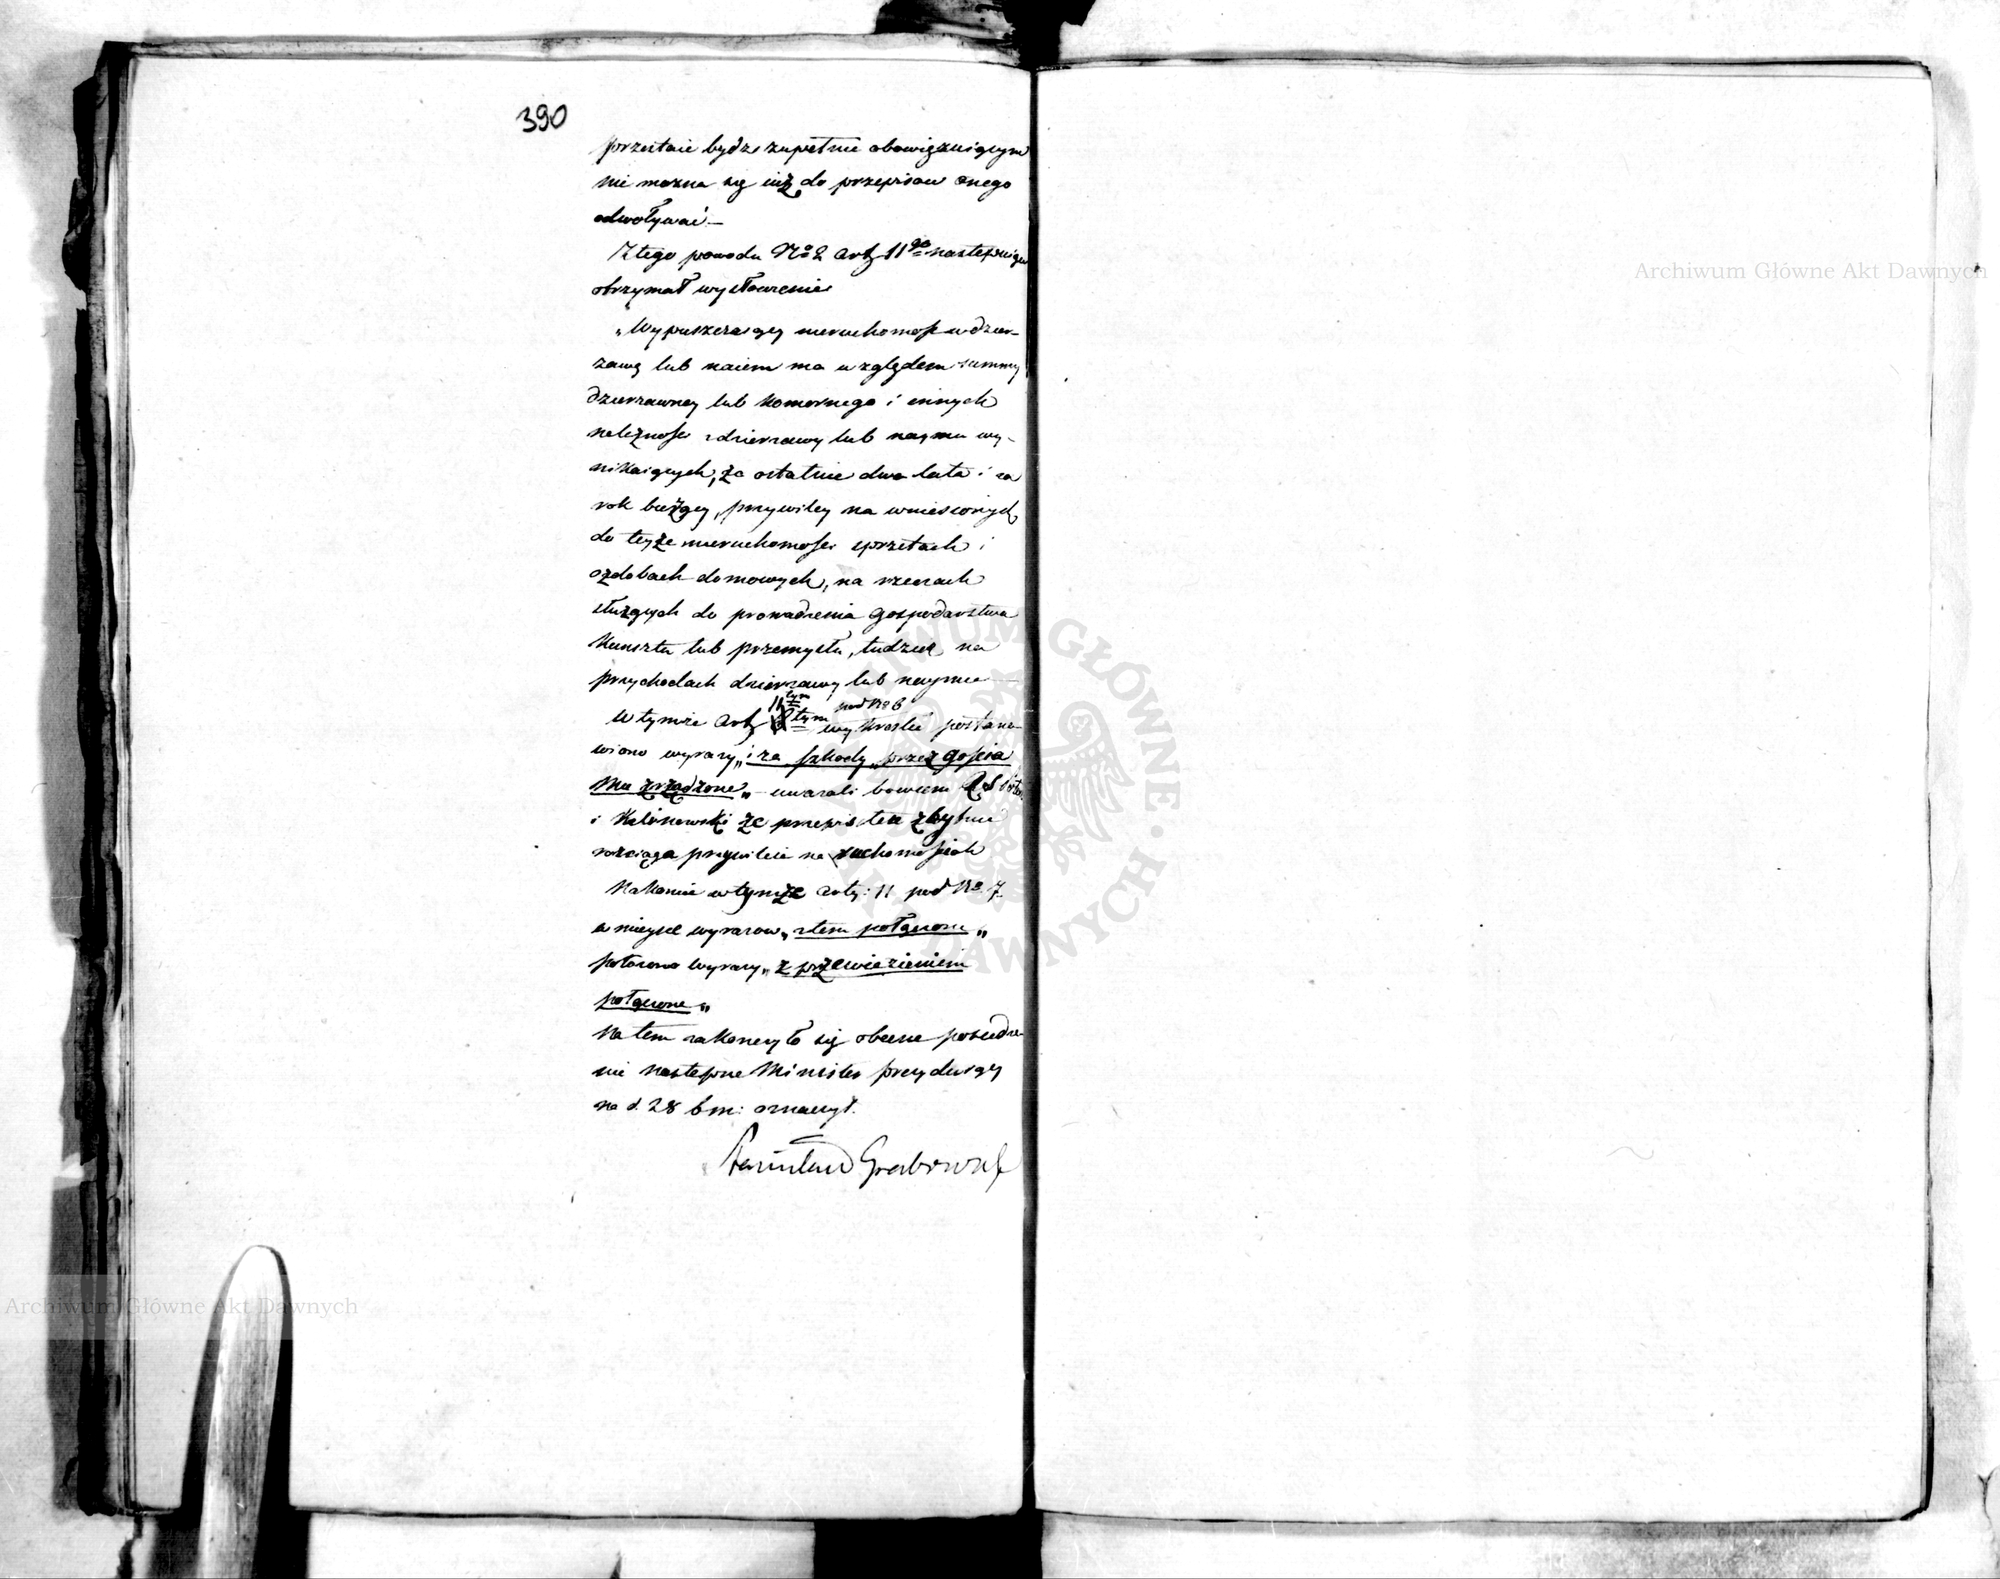 390
przestaie bydź zupełnie obowiązuiącym
nie można się iuż do przepisów onego
odwoływać –
Z tego powodu No 2 art 11go następuiące
otrzymał wysłowienie
„Wypuszczaiący nieruchomość w dzier-
żawę lub naiem ma względem summy
dzierżawney lub komornego i innych
należności z dzierżawy lub naymu wy-
nikaiących, za ostatnie dwa lata i za
rok bieżący, przywiley na wniesionych
do teyże nieruchomości sprzętach i
ozdobach domowych, na rzeczach
służących do prowadzenia gospodarstwa
kunsztu lub przemysłu, tudzież na
przychodach dzierżawy lub naymu –
W tymże art 11tym pod No 6 wykreślić postano-
wiono wyrazy „i za szkody przez gościa
mu zrządzone„ – uważali bowiem
i Kalinowski że przepis ten zbytnie
rozciąga przywileie na ruchomościach
Nakoniec w tymże arty: 11 pod No 7
w mieysce wyrazow „ztem połączone„
położono wyrazy „z przewiezieniem
połączone„
Na tem zakończyło się obecne posiedze-
nie następne Minister prezyduiący
na d. 28 b m: oznaczył.
Stanisław Grabowski
Archiwum Główne Akt Dawnych
Archiwum Główne Akt Dawnych
ARCHIWUM GŁÓWNE AKT DAWNYCH